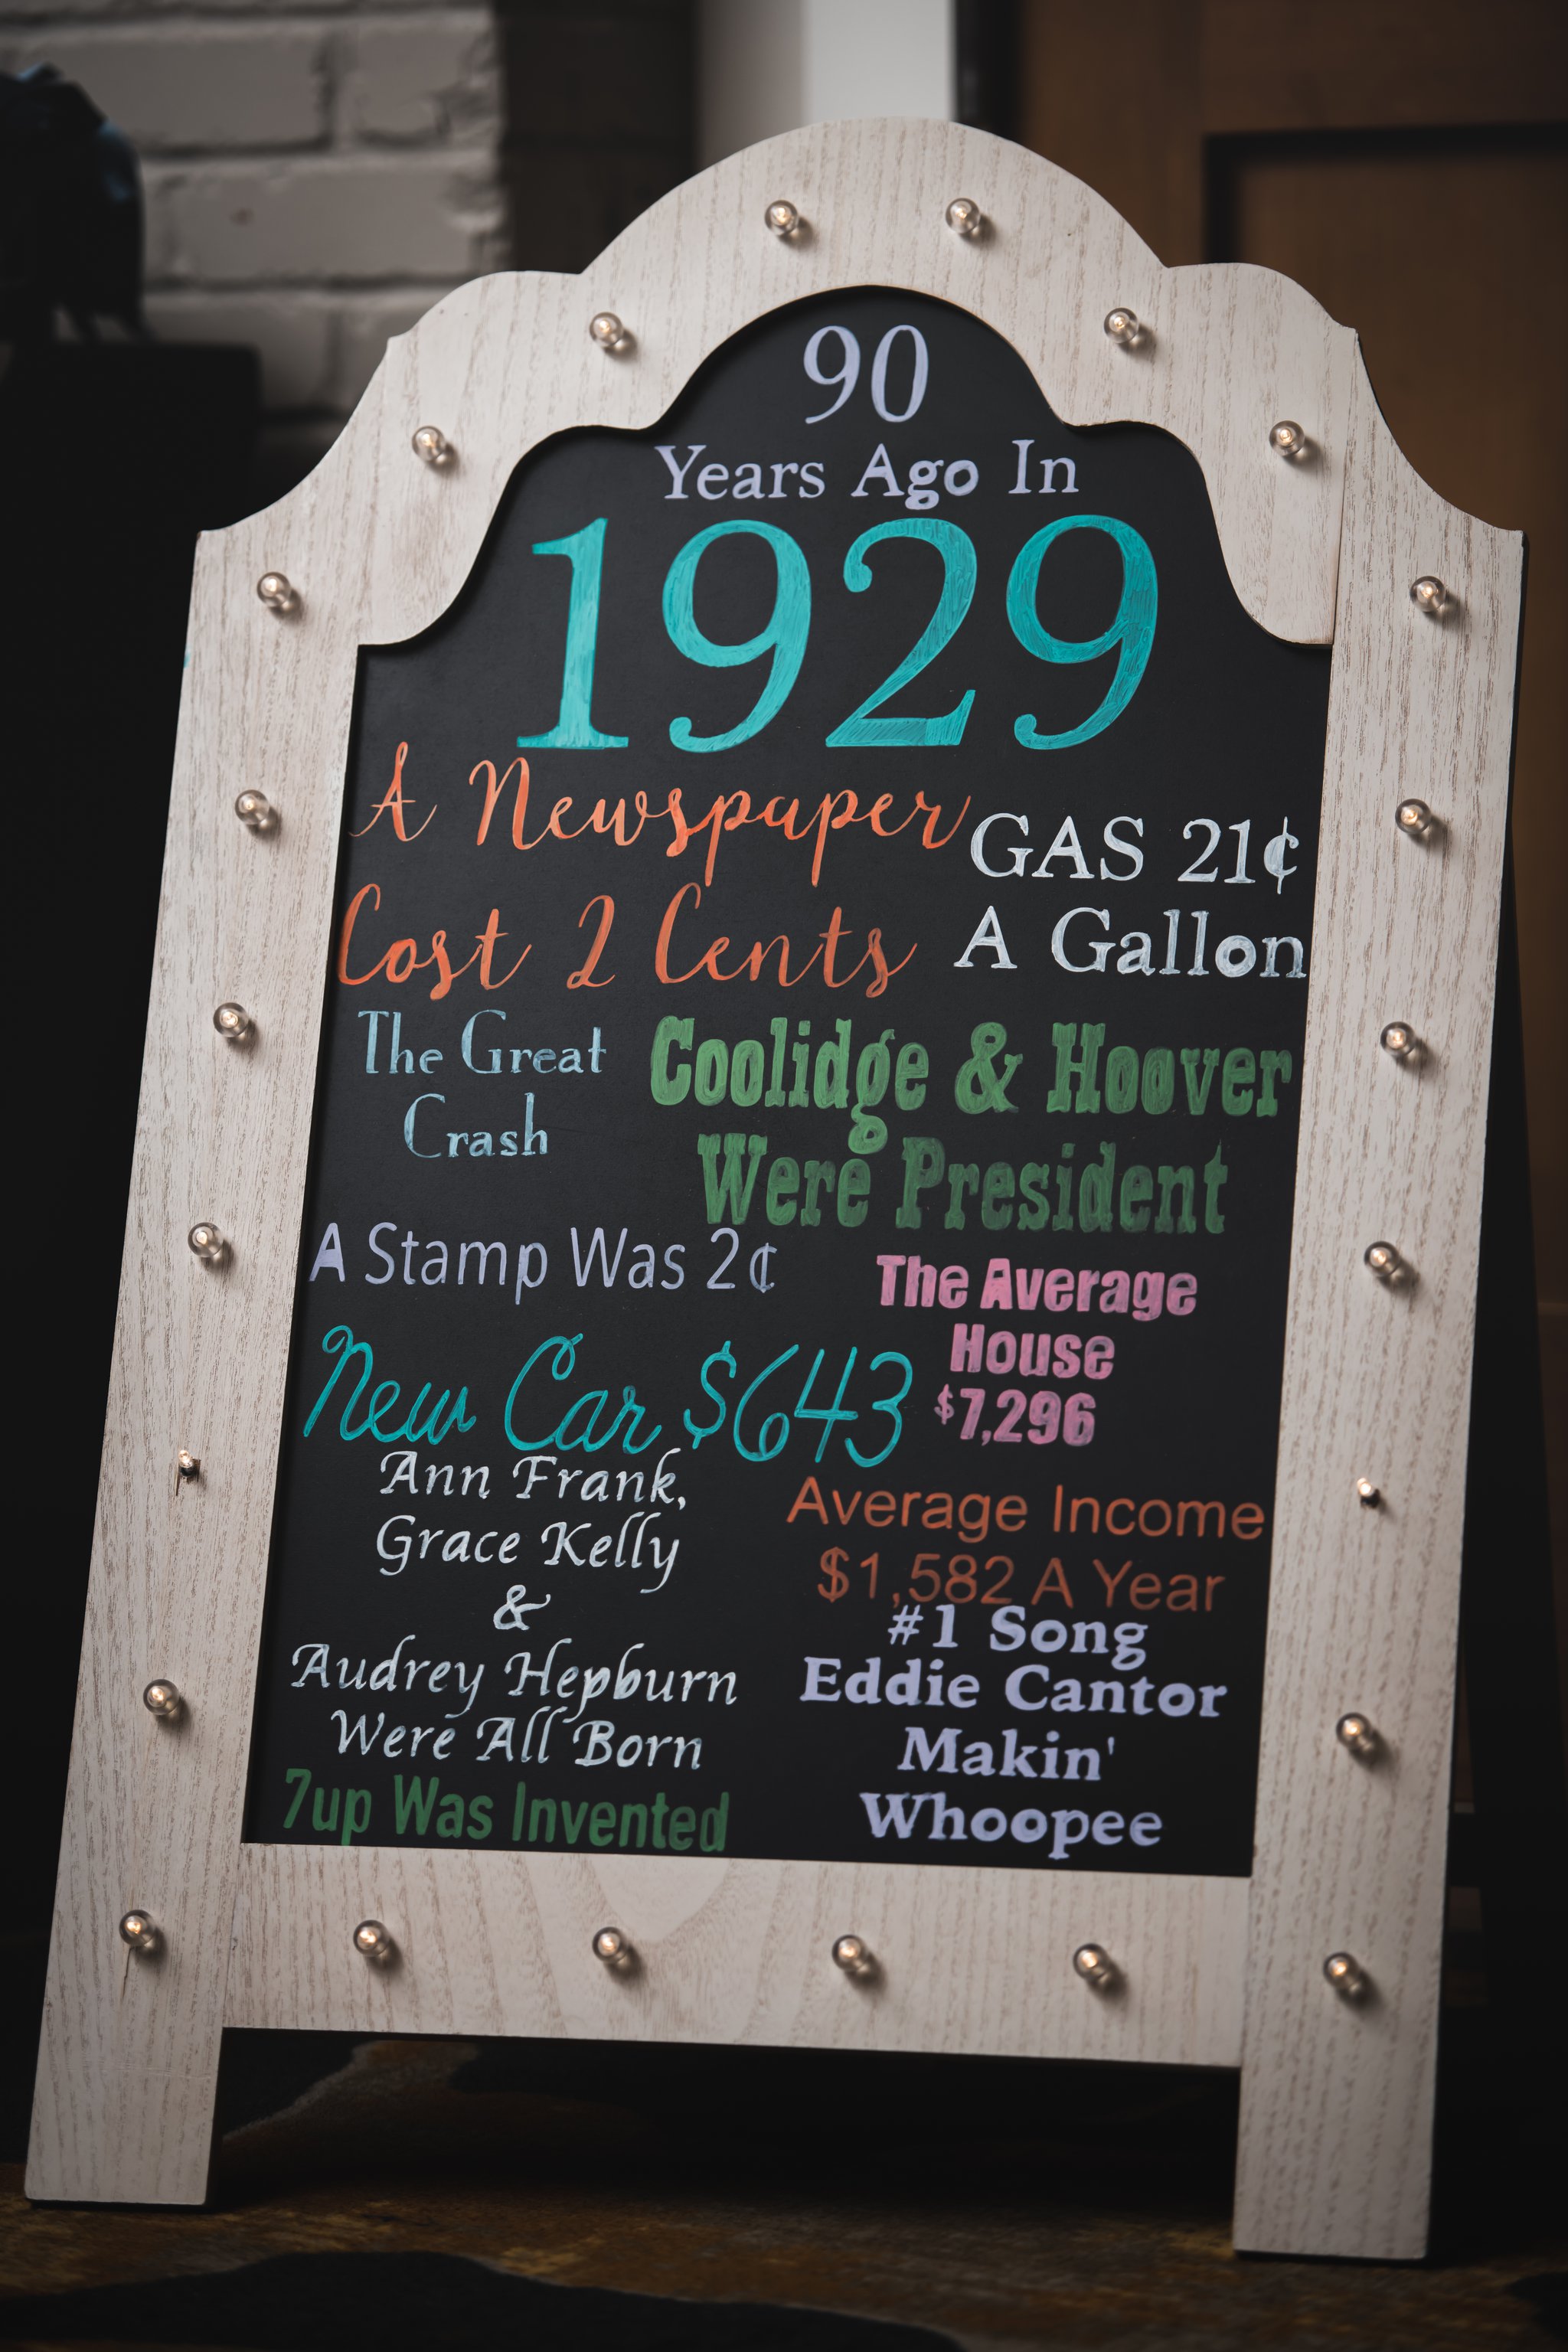 90
Years Ago In
1929
A Newspaper
Cost 2 Cents
GAS 21¢
A Gallon
The Great
Crash
Coolidge & Hoover
Were President
A Stamp Was 2¢
The Average
House
$7,296
New Car $643
Ann Frank,
Grace Kelly
&
Audrey Hepburn
Were All Born
Average Income
$1,582 A Year
#1 Song
Eddie Cantor
Makin'
Whoopee
7up Was Invented